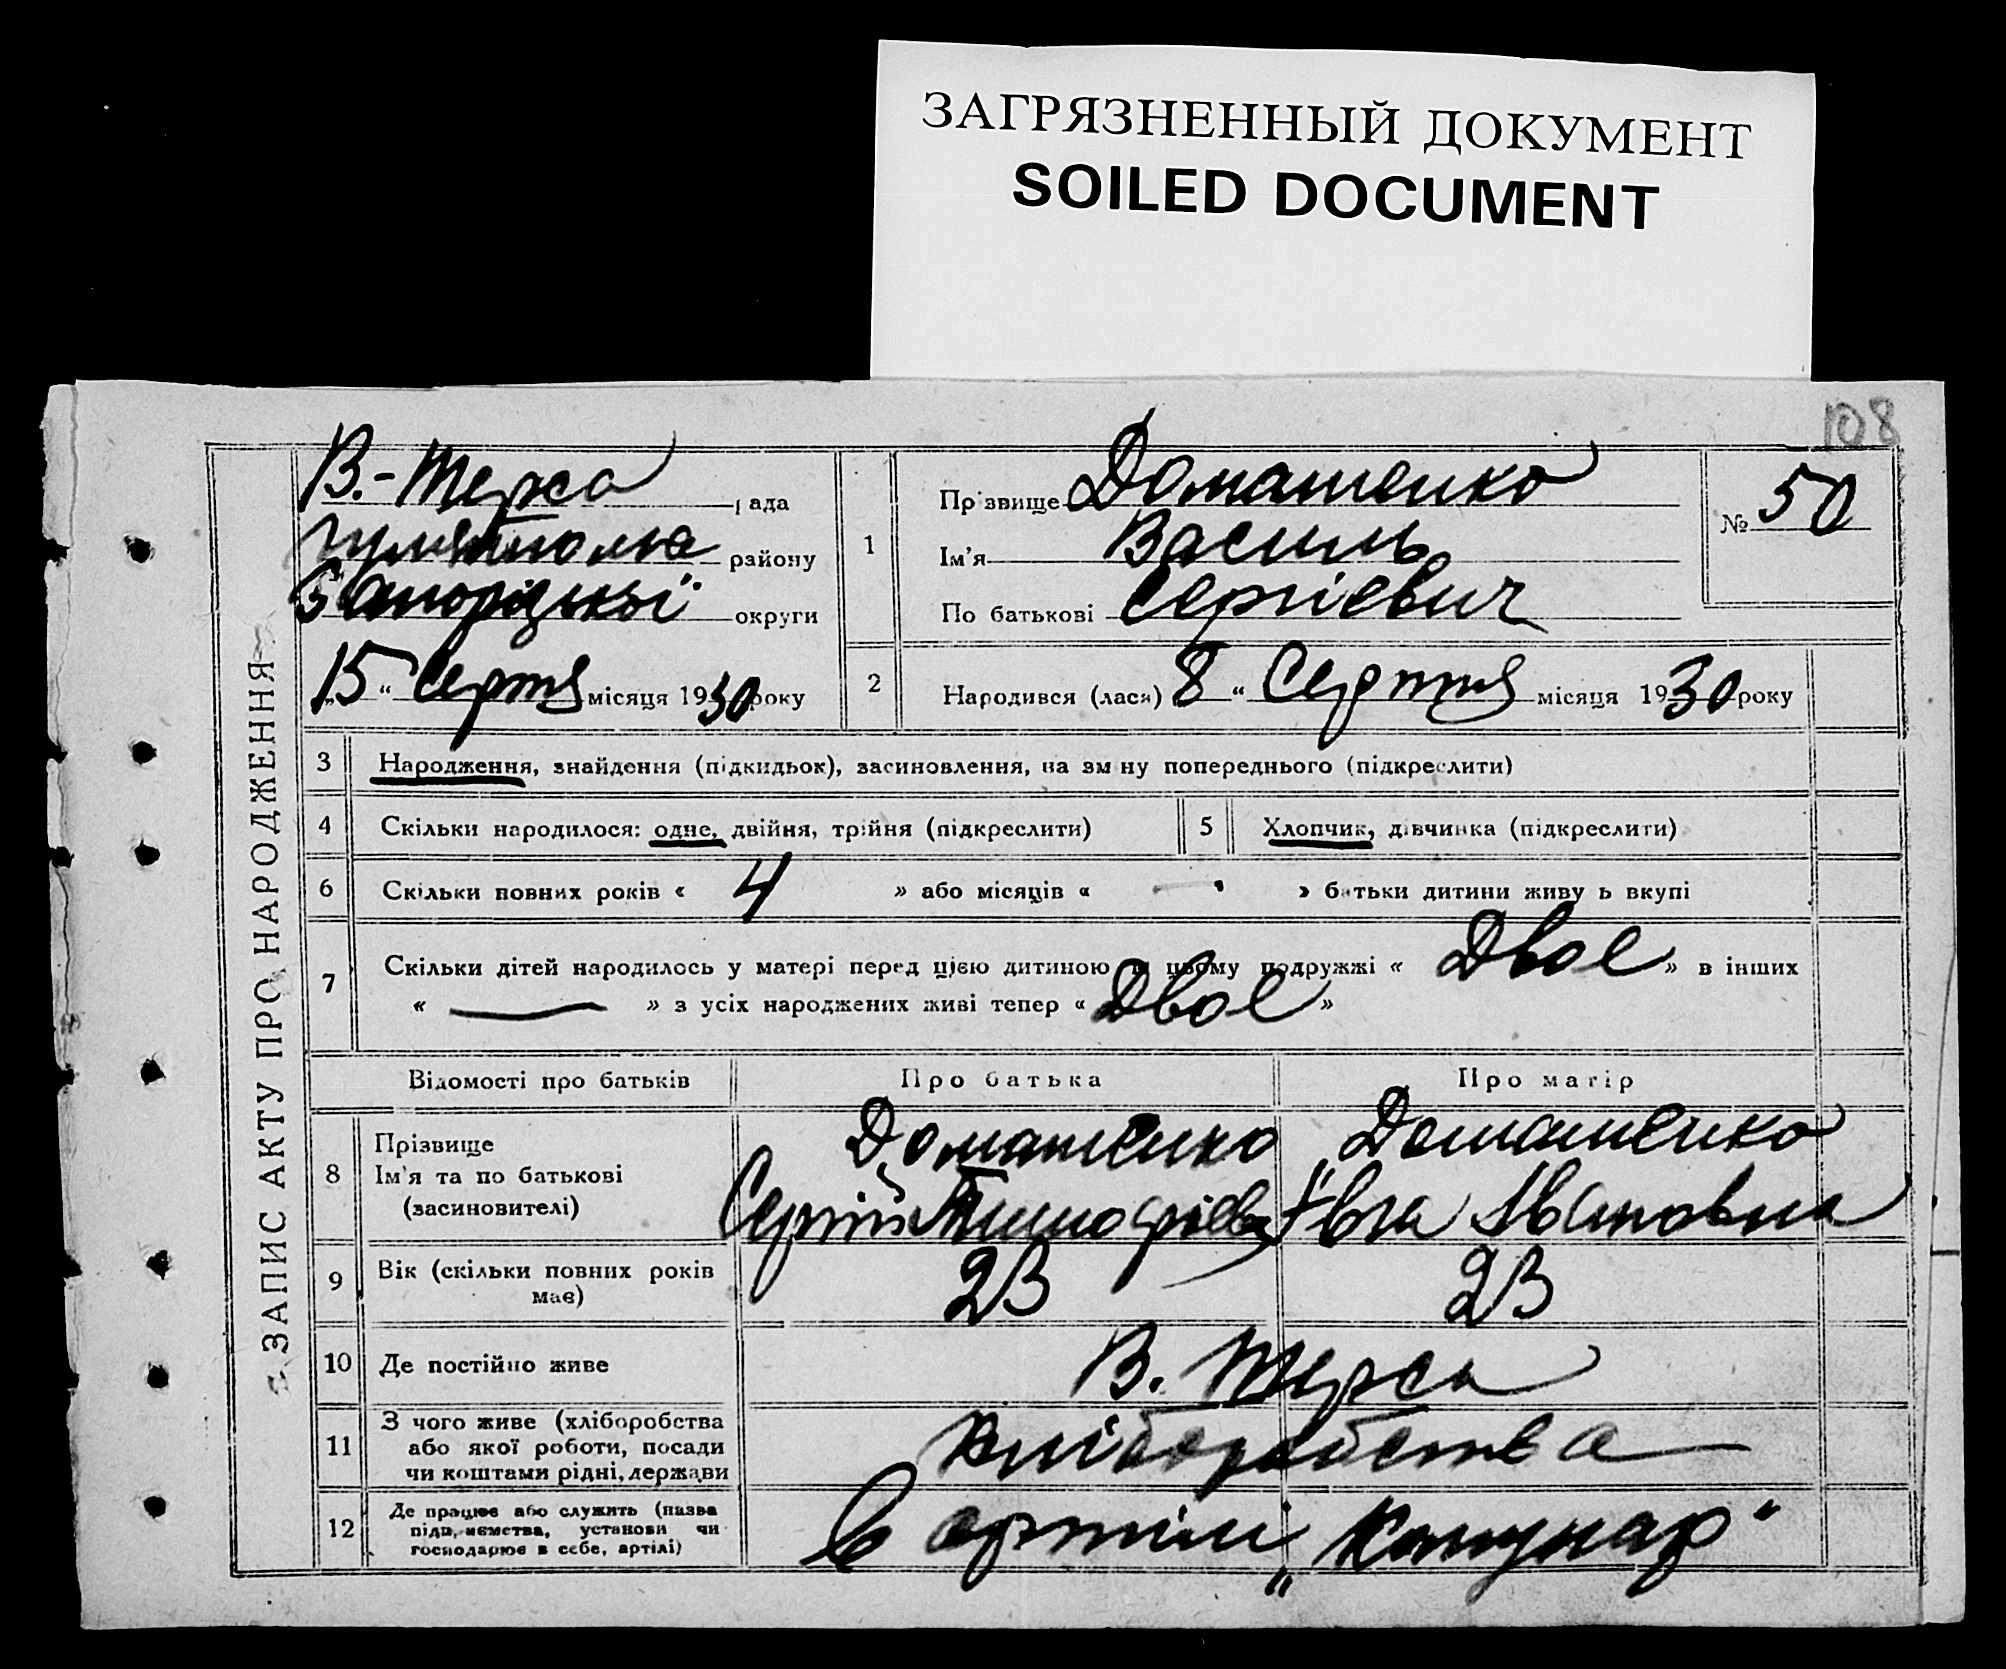 ЗАГРЯЗНЕННЫЙ ДОКУМЕНТ
SOILED DOCUMENT
108
ЗАПИС АКТУ ПРО НАРОДЖЕННЯ
В.-Терса рада
району
Запоріцької округи
15 „ Серпня місяця 1930 року
1
Прізвище Домашенко
Ім'я Василь
По батькові Сергієвич
№ 50
2
Народився (лася) 8 „ Серпня місяця 1930 року
3 Народження, знайдення (підкидьок), засиновлення, на зміну попереднього (підкреслити)
4 Скільки народилося: одне, двійня, трійня (підкреслити)
5 Хлопчик, дівчинка (підкреслити)
6 Скільки повних років « 4 » або місяців « — » батьки дитини живуть вкупі
7 Скільки дітей народилось у матері перед цією дитиною в цьому подружжі « Двоє » в інших
« — » з усіх народжених живі тепер « Двоє »
Відомості про батьків Про батька Про матір
8 Прізвище
Ім'я та по батькові
(засиновителі)
Домашенко
Сергій
Домашенко
Ївга Івановна
9 Вік (скільки повних років
має)
23 23
10 Де постійно живе В. Терса
11 З чого живе (хліборобства
або якої роботи, посади
чи коштами рідні, держави
хліборобства
12 Де працює або служить (назва
підприємства, установи чи
господарює в себе, артілі)
В артілі „Комунар"